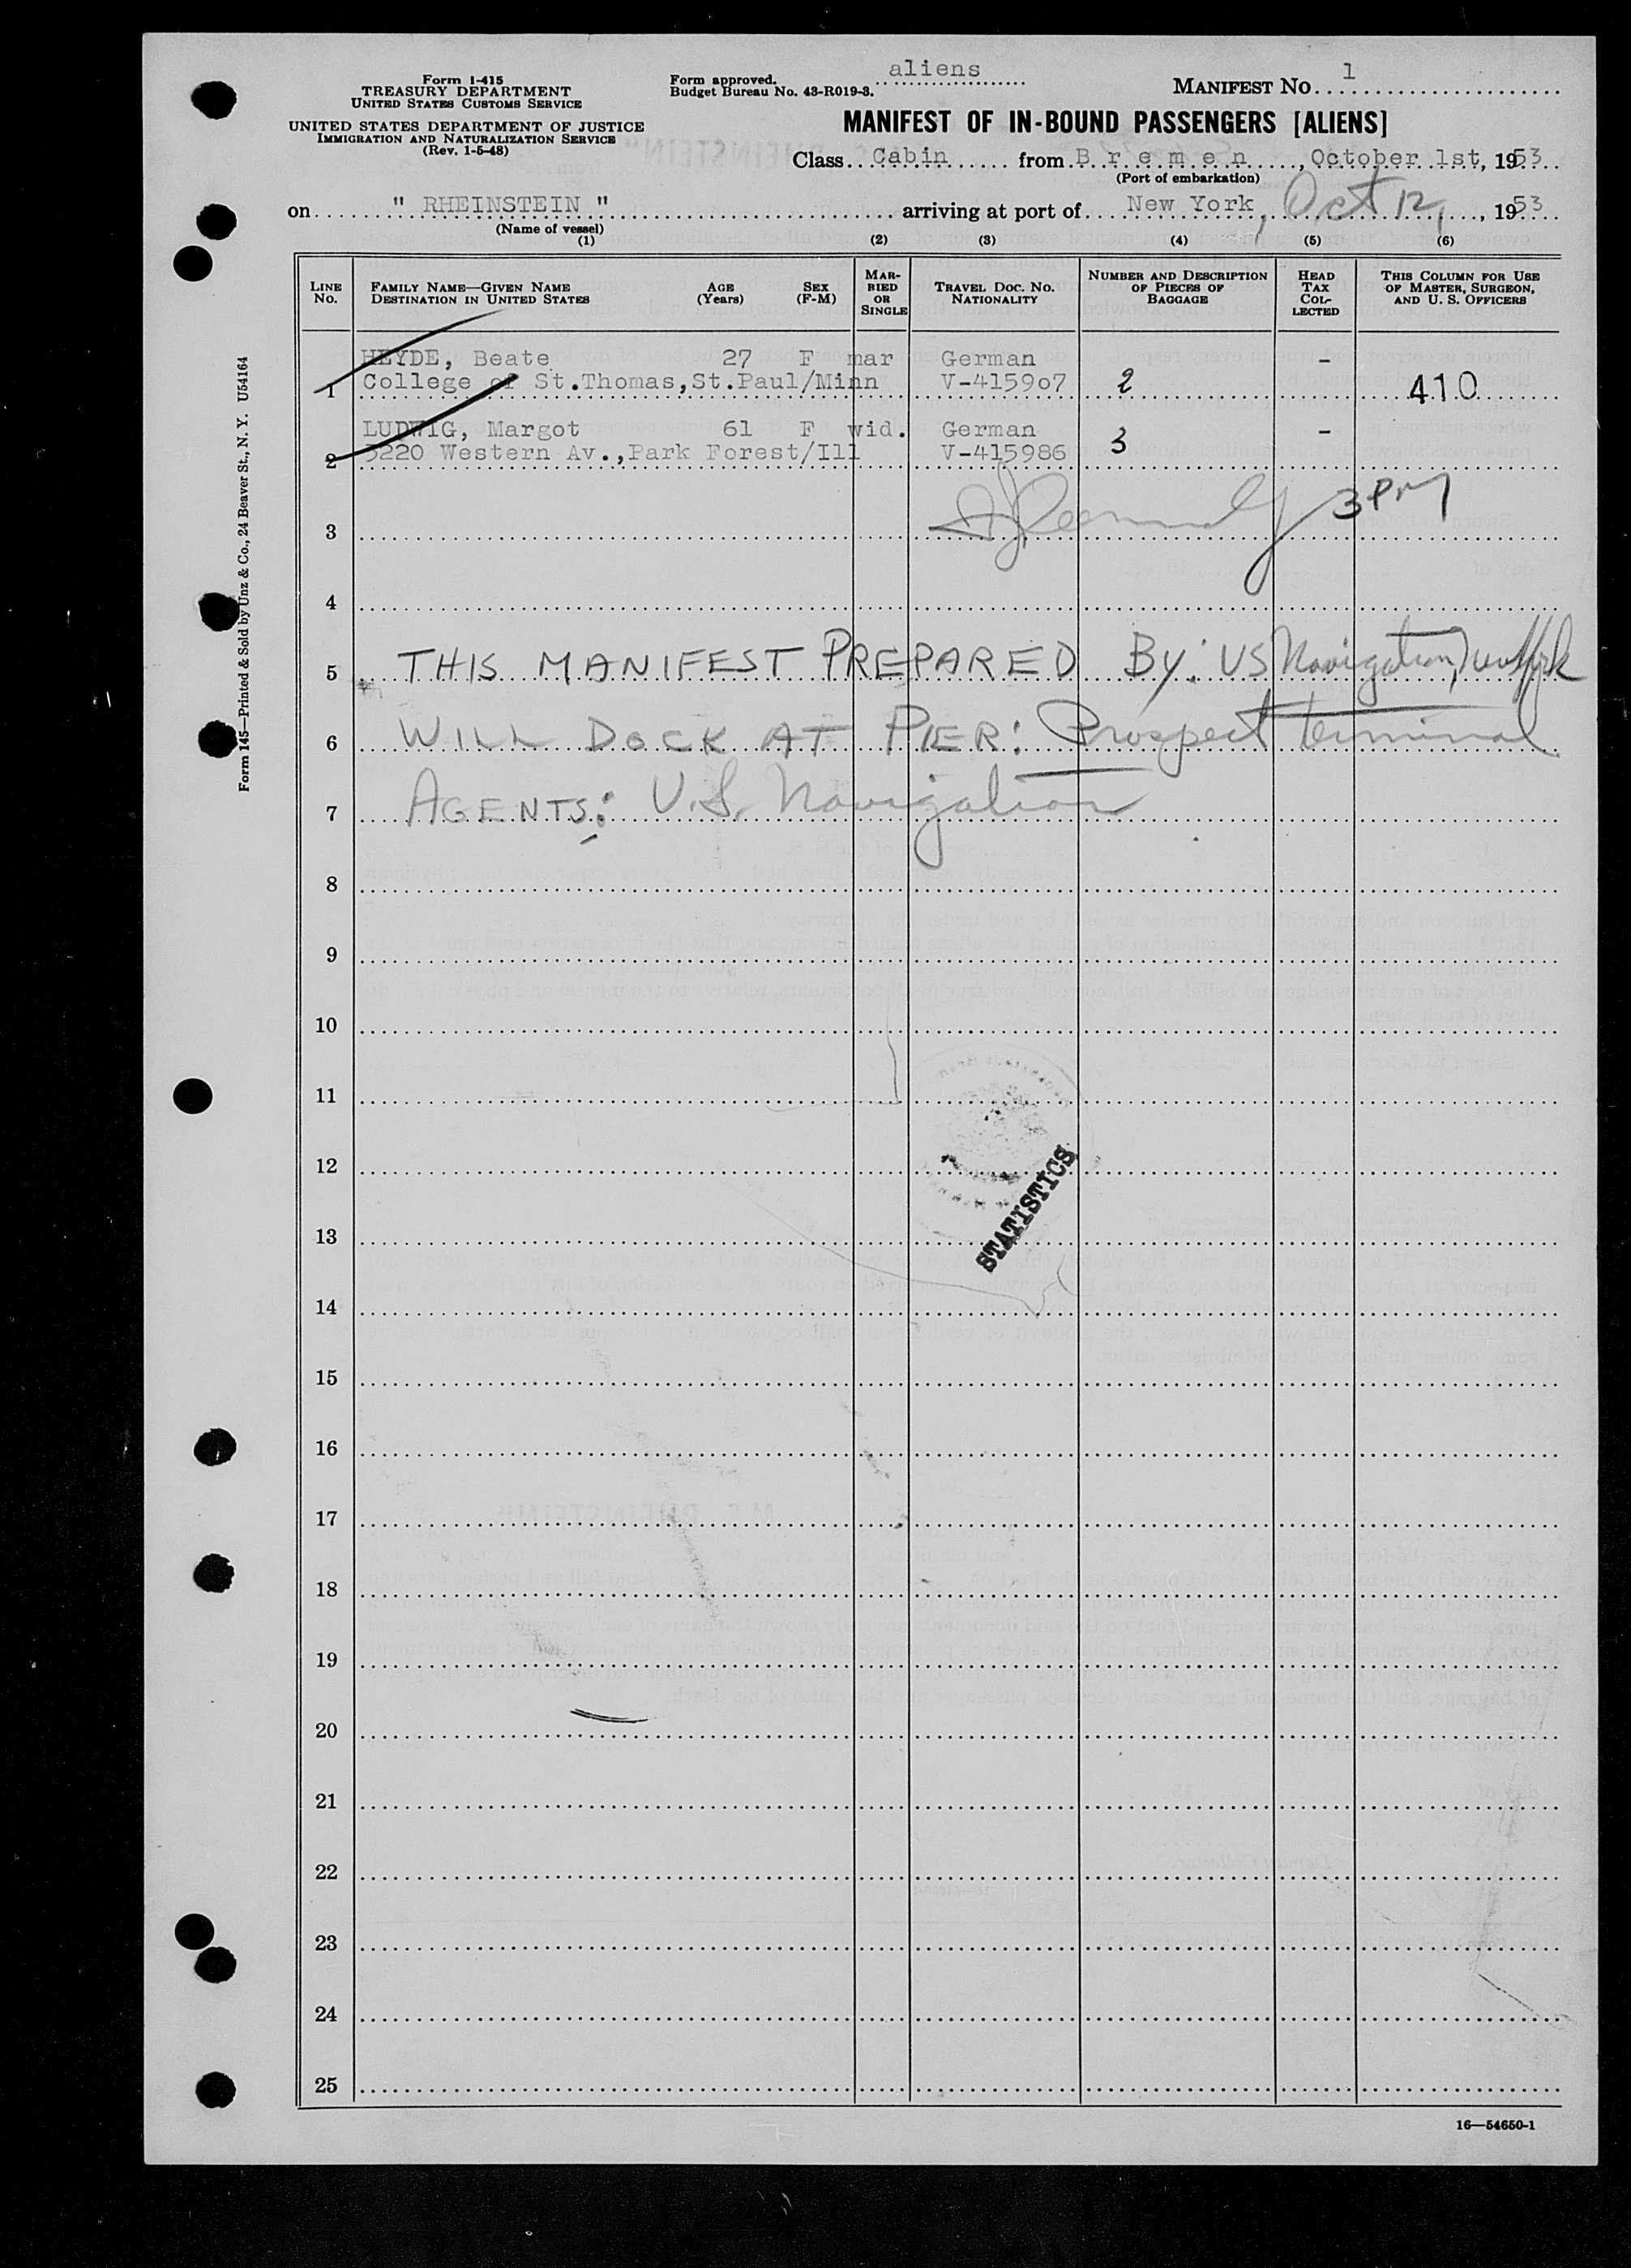 Form I-415
TREASURY DEPARTMENT
UNITED STATES CUSTOMS SERVICE
UNITED STATES DEPARTMENT OF JUSTICE
IMMIGRATION AND NATURALIZATION SERVICE
(Rev. 1-5-48)
Form approved.
Budget Bureau No. 43-R019-3.
aliens
MANIFEST NO. 1
MANIFEST OF IN-BOUND PASSENGERS [ALIENS]
Class Cabin from B r e m e n, October 1st, 1953
(Port of embarkation)
on " RHEINSTEIN " arriving at port of New York, Oct 12, 1953
(Name of vessel)
(1) (2) (3) (4) (5) (6)
LINE NO.
FAMILY NAME—GIVEN NAME
DESTINATION IN UNITED STATES
AGE (Years)
SEX (F-M)
MARRIED OR SINGLE
TRAVEL DOC. NO.
NATIONALITY
NUMBER AND DESCRIPTION OF PIECES OF BAGGAGE
HEAD TAX COLLECTED
THIS COLUMN FOR USE OF MASTER, SURGEON, AND U. S. OFFICERS
HEYDE, Beate 27 F mar German -
1 College of St.Thomas,St.Paul/Minn V-415907 2 410
LUDWIG, Margot 61 F wid. German -
2 3220 Western Av.,Park Forest/Ill V-415986 3
3 3 PM
4
5 THIS MANIFEST PREPARED BY: US Navigation, New York
6 WILL DOCK AT PIER: Prospect Terminal
7 AGENTS: U.S. Navigation
8
9
10
11
12
STATISTICS
13
14
15
16
17
18
19
20
21
22
23
24
25
16—54650-1
Form 145—Printed & Sold by Unz & Co., 24 Beaver St., N. Y. U54164